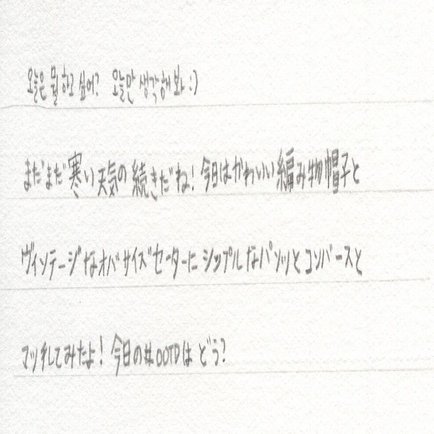 오늘은 뭘 하고 싶어? 오늘만 생각해봐 :)
まだまだ寒い天気の続きだね! 今日はかわいい編み物帽子と
ヴィンテージなオバサイズセーターにシンプルなパンツとコンバースと
マッチしてみたよ! 今日の#OOTDは どう?